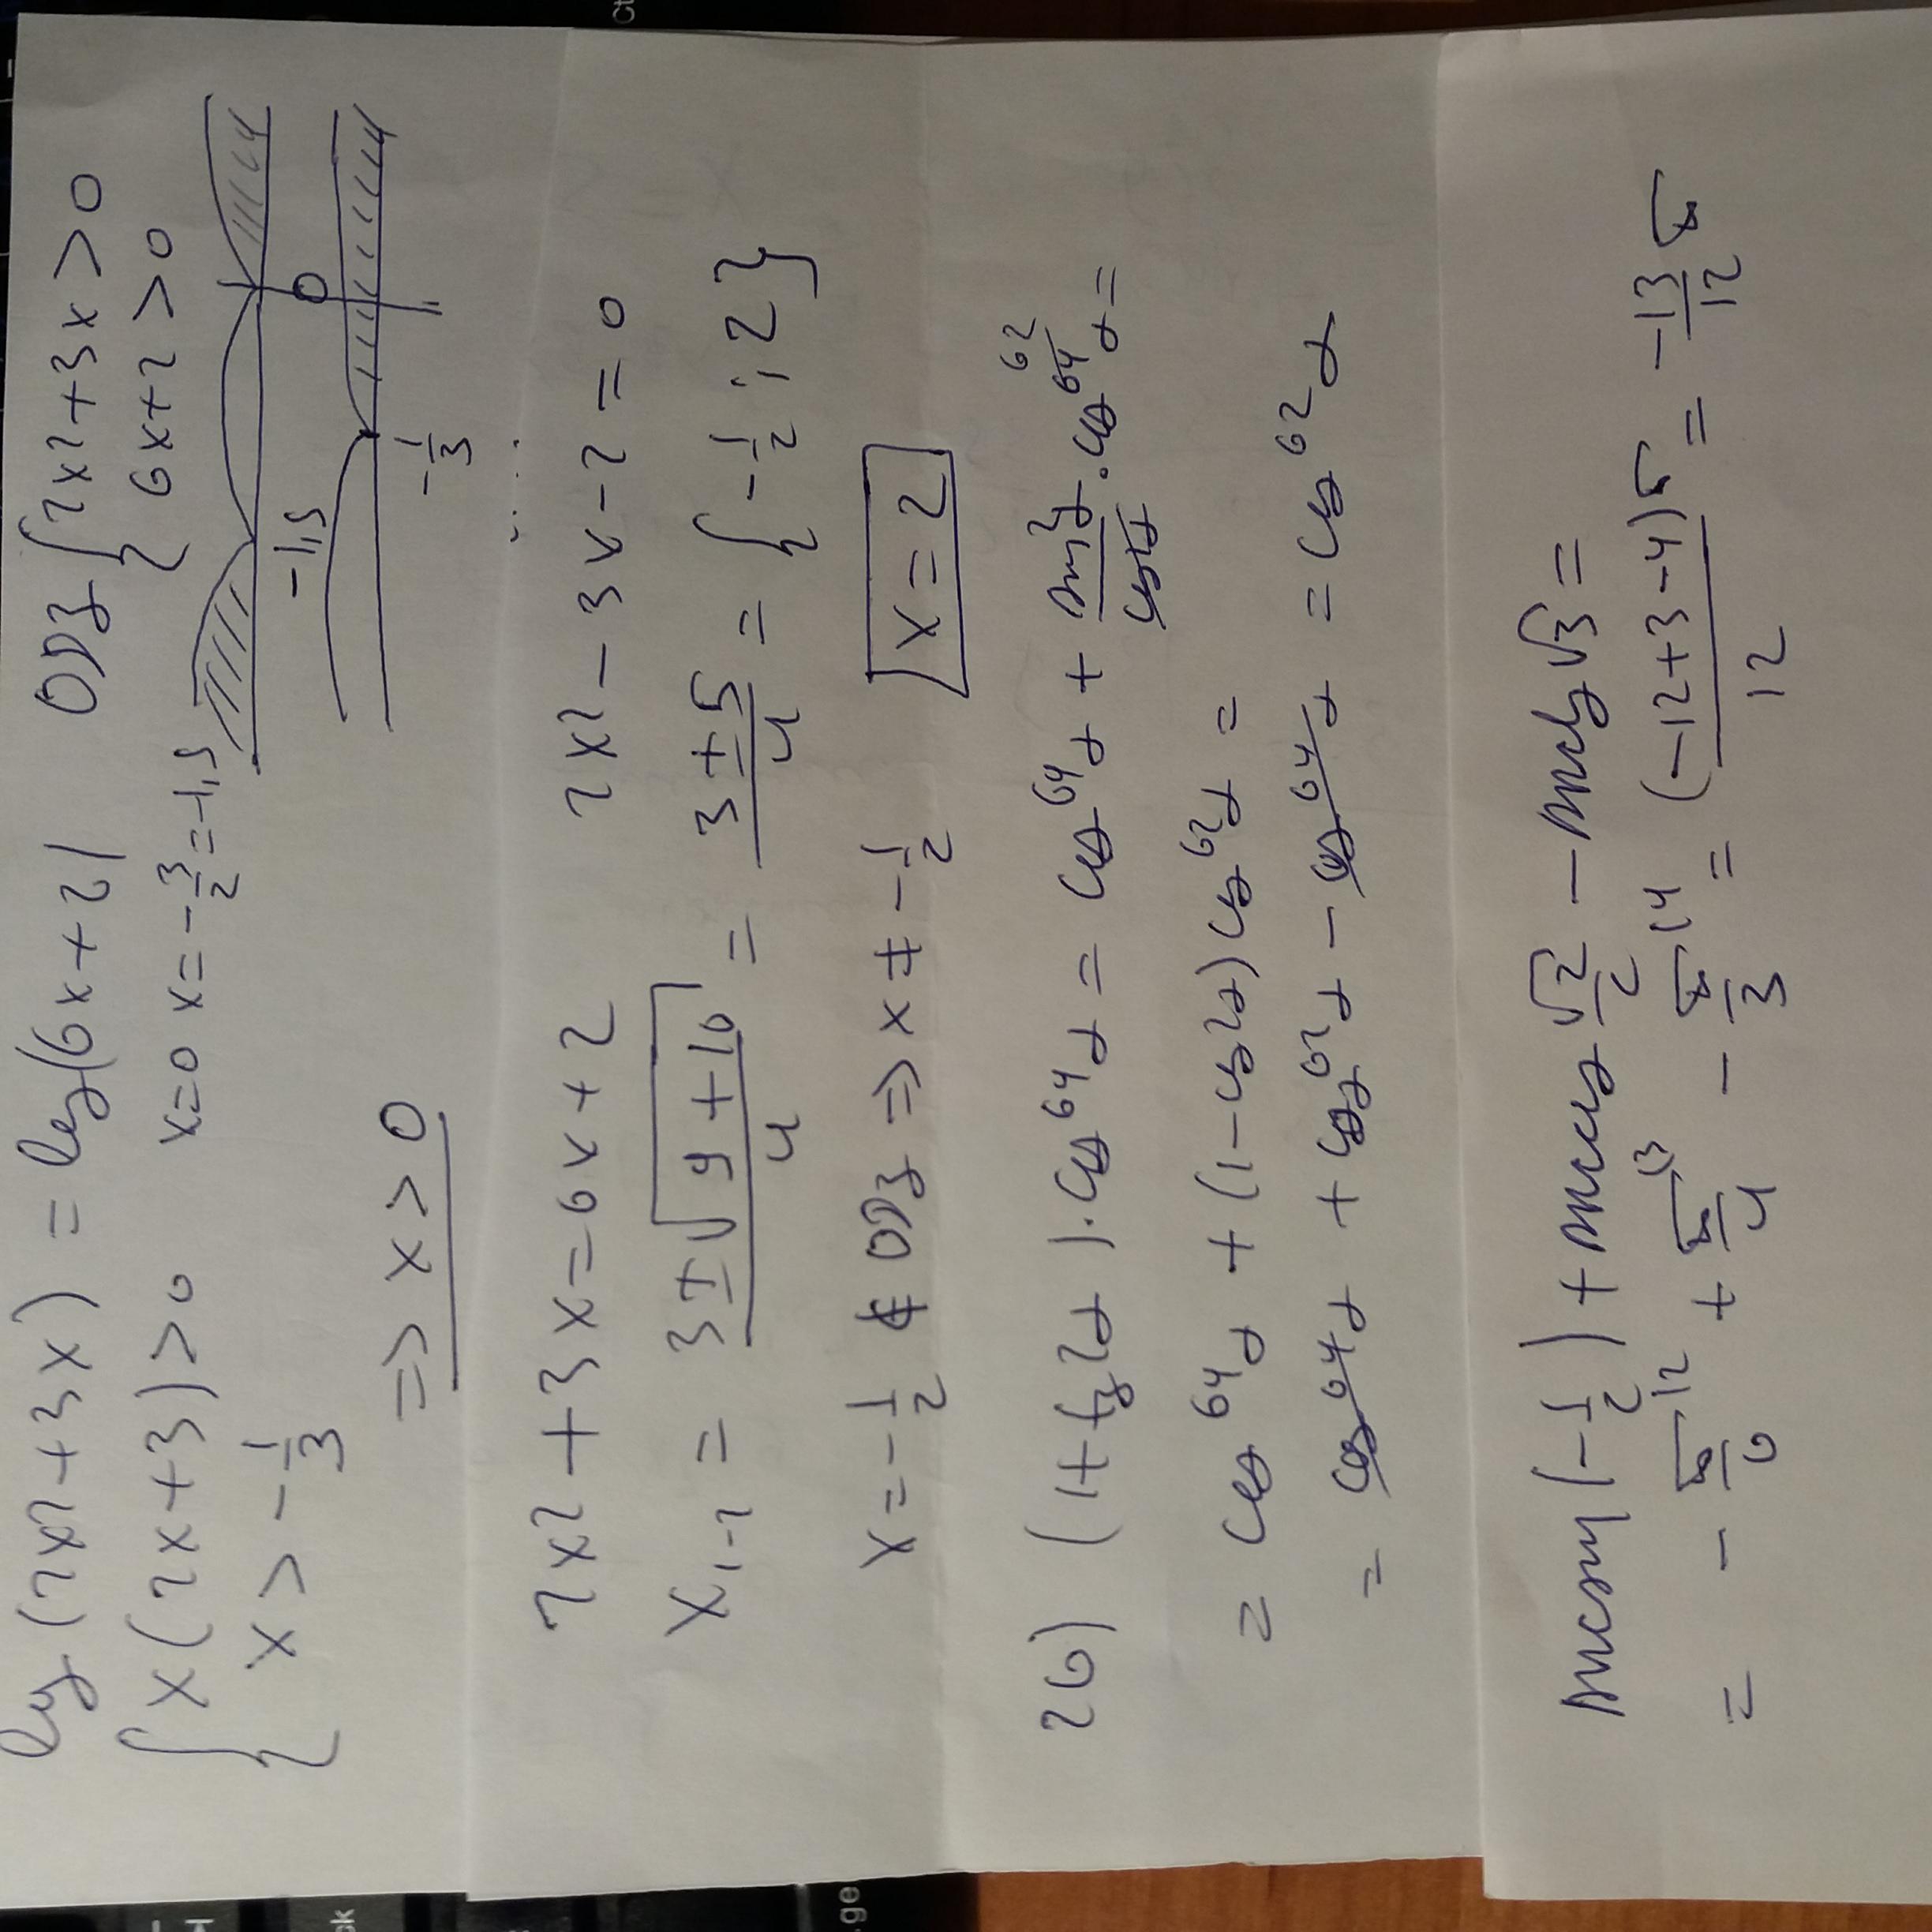 log(2x²+3x) = log(6x+2) ОДЗ { 2x²+3x>0
6x+2>0
{ x(2x+3)>0 x=0 x=-3/2=-1,5
x>-1/3
-1,5 0
-1/3
=> x>0
2x²+3x=6x+2 2x²-3x-2=0
x₁₋₂ = 3±√9+16/4 = 3±5/4 = {-1/2; 2}
x=-1/2 ∉ ОДЗ => x≠-1/2 x=2
26) (1+tg²α)·cos⁶⁴α = cos⁶⁴α + sin²α/cos²α·cos⁶⁴ ⁶²α =
= cos⁶⁴α + (1-cos²α)cos⁶²α =
= cos⁶⁴α + cos⁶²α - cos⁶⁴α = cos⁶²α
arcsin(-1/2) + arccos √2/2 - arctg√3 =
= -π/6 \2 + π/4 \3 - π/3 \4 = (-12+3-4)π/12 = -13/12 π
Ct
ck
ge